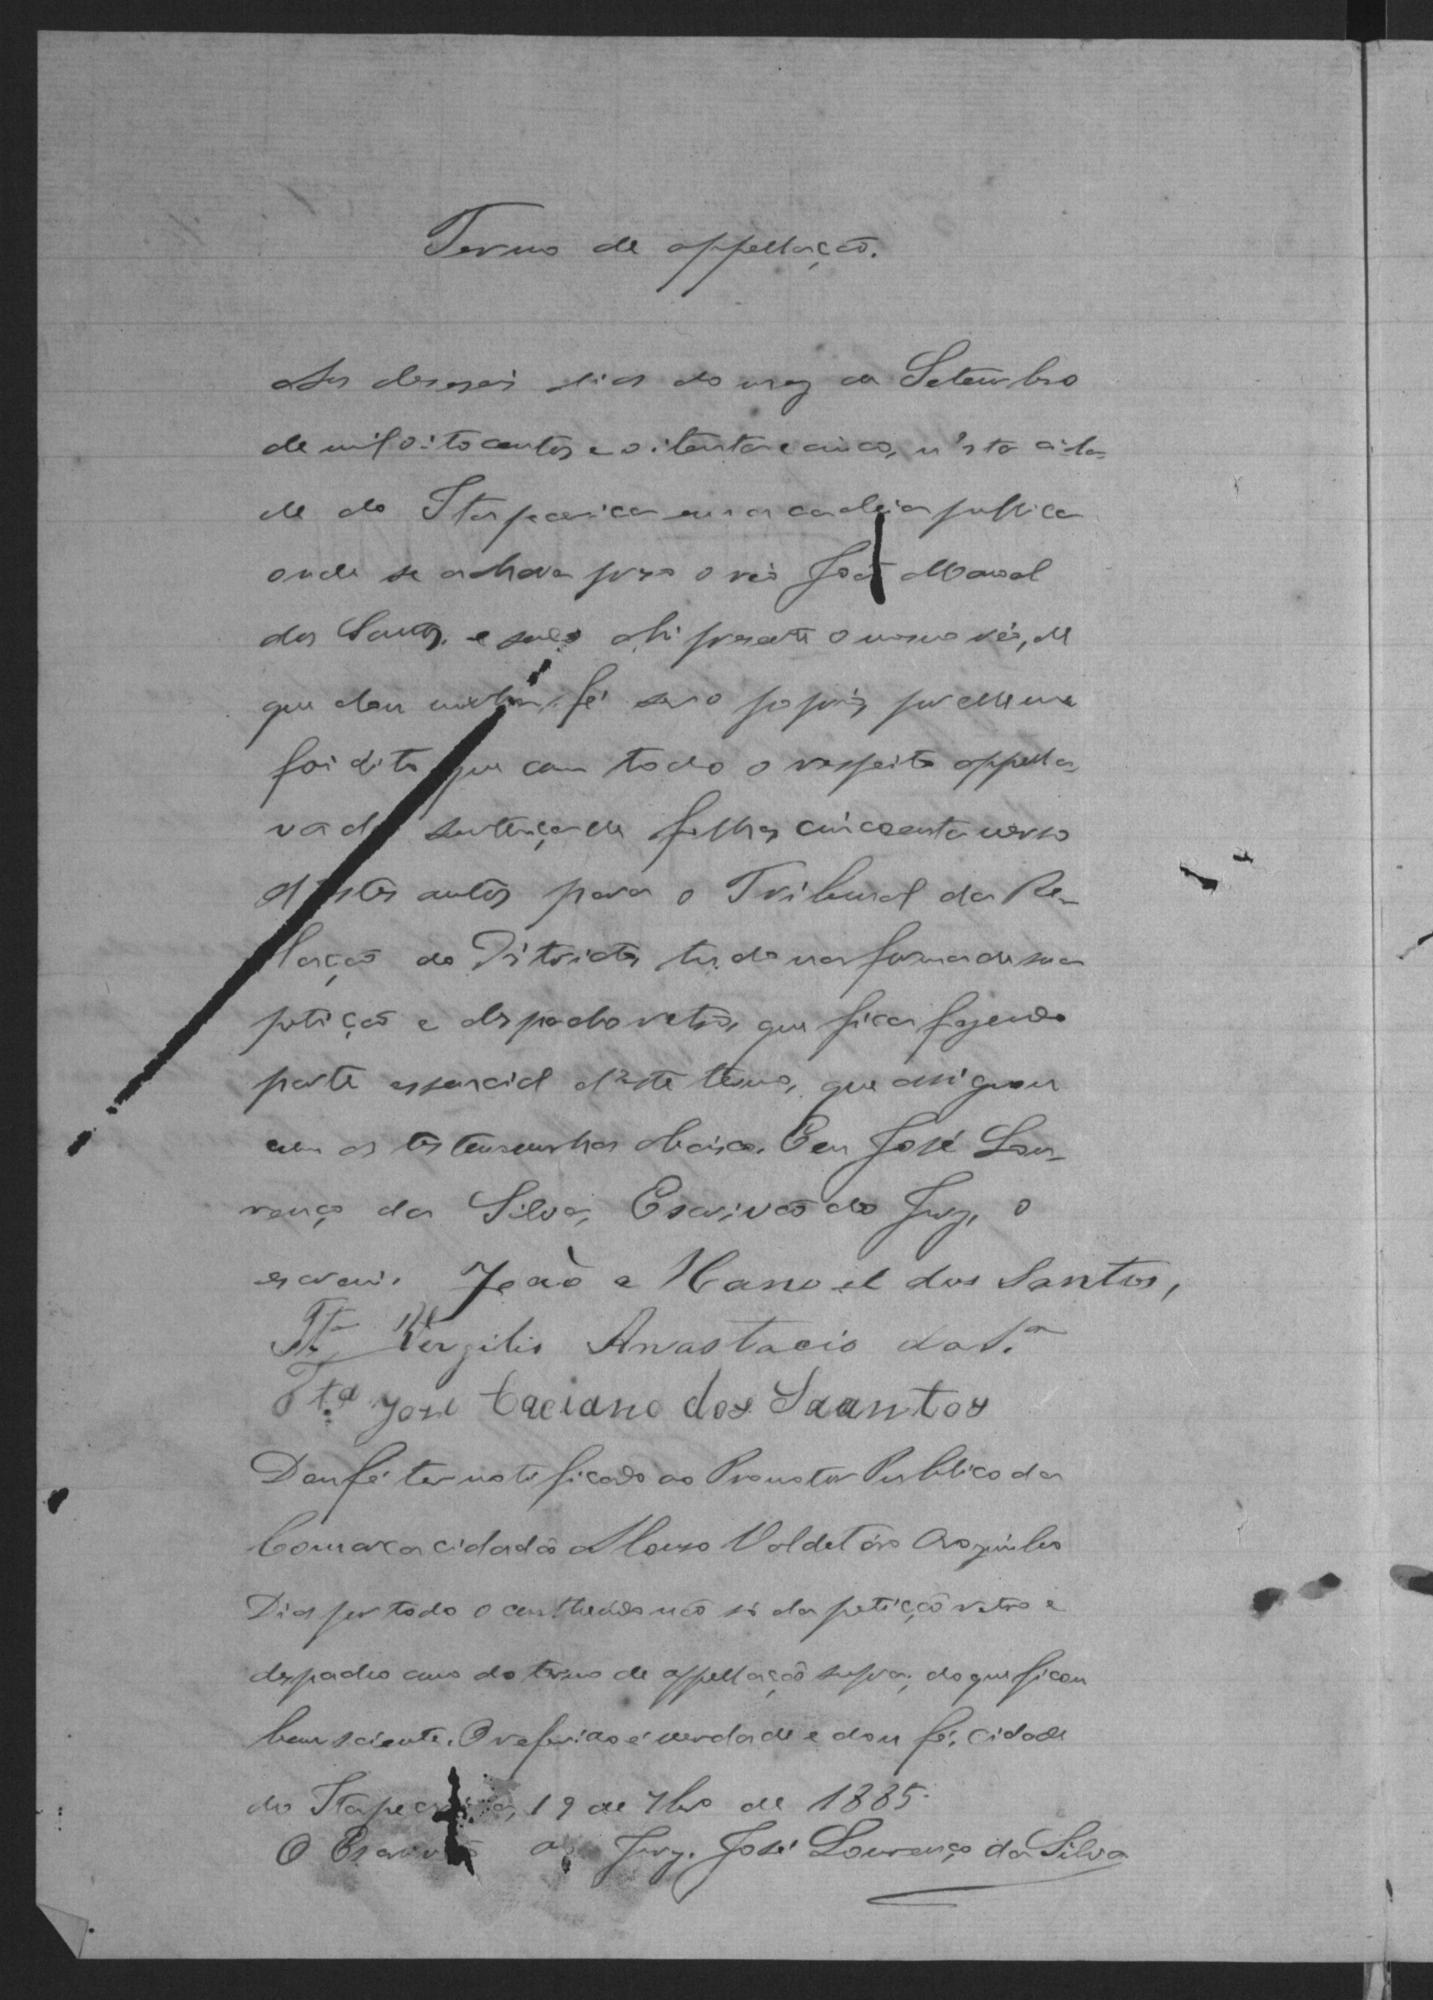 Termo de appellação.
Aos deseseis dias do mez de Setembro
de mil oitocentos e oitenta e cinco, n'esta cida-
de do Itapecerica em a cadeia publica
onde se achava prezo o réo João Manoel
dos Santos, e sendo ahi presente o mesmo réo, de
que dou minha fé ser o proprio, por elle me
foi dito que com todo o respeito appella-
va da sentença de folhas cincoenta verso
d'estes autos para o Tribunal da Re-
lação do Districto, tudo na forma de sua
petição e despacho retro, que fica fazendo
parte essencial d'este termo, que assignou
com as testemunhas abaixo. Eu José Lou-
renço da Silva, Escrivão do Jury, o
escrevi. João e Manoel dos Santos,
Tta Virgilio Anastacio da S.a
Tta José Caciano dos Saantos
Dou fé ter notificado ao Promotor Publico da
Comarca cidadão Afonso Valdetáro
Dias por todo o conthendo não só da petição retro e
despacho como do termo de appellação supra; do que ficou
bem sciente. O referido é verdade e dou fé, cidade
do Itapecerica, 19 de 7bro de 1885.
O Escrivão do Jury. José Lourenço da Silva